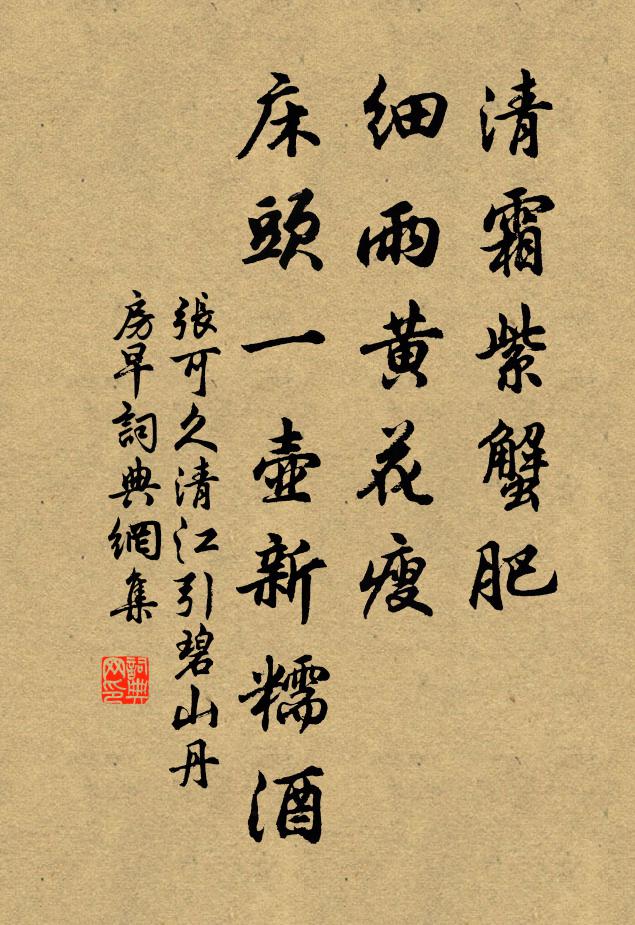 清霜紫蟹肥
細雨黄花瘦
床頭一壺新糯酒
張可久清江引碧山丹
房早詞典網集
詞典网印